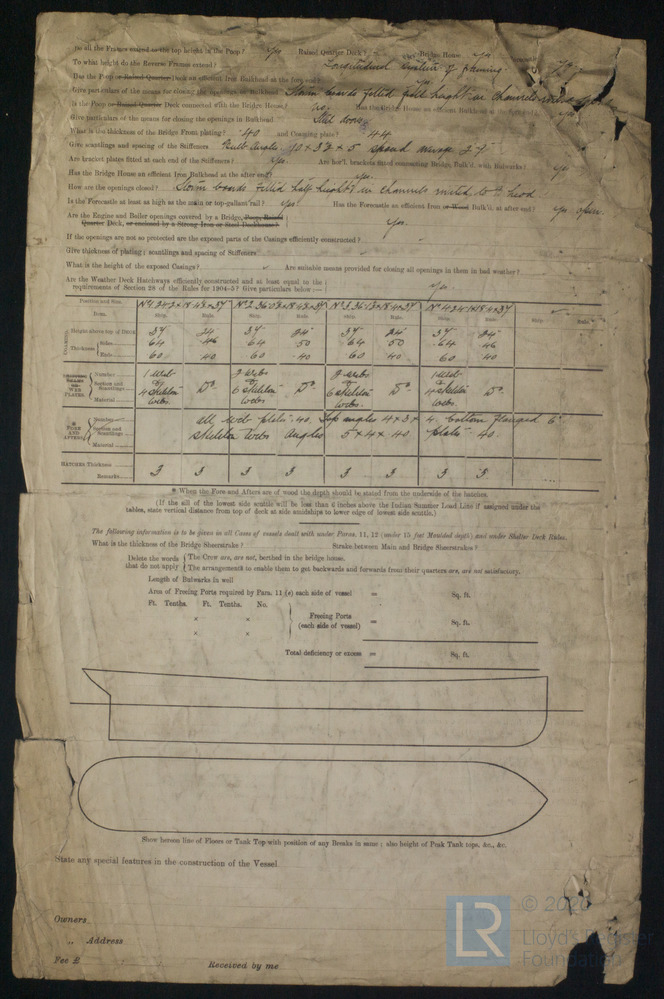 Do all the Frames extend to the top height in the Poop? Yes Raised Quarter Deck? Bridge House Yes
To what height do the Reverse Frames extend? Longitudinal System of framing
Has the Poop or Raised Quarter Deck an efficient Iron Bulkhead at the fore end? Yes
Give particulars of the means for closing the openings in Bulkhead Storm boards fitted full height in channels
Is the Poop or Raised Quarter Deck connected with the Bridge House? no Has the Bridge House an efficient Bulkhead at the fore end? Yes
Give particulars of the means for closing the openings in Bulkhead Steel doors
What is the thickness of the Bridge Front plating? 40 and Coaming plate? 44
Give scantlings and spacing of the Stiffeners Bulb angle 10 x 3½ x 5 spaced 27
Are bracket plates fitted at each end of the Stiffeners? Yes. Are hor'l. brackets fitted connecting Bridge Bulk'd. with Bulwarks? Yes
Has the Bridge House an efficient Iron Bulkhead at the after end? Yes.
How are the openings closed? Storm boards fitted half height in channels riveted to Bhead
Is the Forecastle at least as high as the main or top-gallant rail? Yes Has the Forecastle an efficient Iron or Wood Bulk'd. at after end? Yes open.
Are the Engine and Boiler openings covered by a Bridge, Poop, Raised
Quarter Deck, or enclosed by a Strong Iron or Steel Deckhouse? Yes.
If the openings are not so protected are the exposed parts of the Casings efficiently constructed?
Give thickness of plating; scantlings and spacing of Stiffeners
What is the height of the exposed Casings? Are suitable means provided for closing all openings in them in bad weather?
Are the Weather Deck Hatchways efficiently constructed and at least equal to the
requirements of Section 28 of the Rules for 1904-5? Give particulars below:— Yes
Position and Size.
Item. Ship. Rule. Ship. Rule. Ship. Rule. Ship. Rule. Ship. Rule.
COAMING Height above top of Deck 37 24 37 24 37 24 37 24
Thickness Sides 64 46 64 50 64 50 64 46
Ends 60 40 60 40 60 40 60 40
Number 1 web 2 webs 2 webs 1 web
Section and Scantlings & 4 skeleton Do & 6 skeleton Do & 6 skeleton Do & 4 skeleton Do
Material webs. webs. webs. webs.
FORE AND AFTERS Number all web plate 40. Top angles 4 x 3 x 4. bottom flanged 6"
Section and Scantlings skeleton webs angles 5 x 4 x 40 plate 40.
Material
HATCHES Thickness 3 3 3 3 3 3 3 3
Remarks
* When the Fore and Afters are of wood the depth should be stated from the underside of the hatches.
(If the sill of the lowest side scuttle will be less than 6 inches above the Indian Summer Load Line if assigned under the
tables, state vertical distance from top of deck at side amidships to lower edge of lowest side scuttle.)
The following information is to be given in all Cases of vessels dealt with under Paras. 11, 12 (under 15 feet Moulded depth) and under Shelter Deck Rules.
What is the thickness of the Bridge Sheerstrake? Strake between Main and Bridge Sheerstrakes?
Delete the words that do not apply { The Crew are, are not, berthed in the bridge house.
The arrangements to enable them to get backwards and forwards from their quarters are, are not satisfactory.
Length of Bulwarks in well
Area of Freeing Ports required by Para. 11 (e) each side of vessel = Sq. ft.
Ft. Tenths. Ft. Tenths. No.
× × Freeing Ports (each side of vessel) = Sq. ft.
× ×
Total deficiency or excess = Sq. ft.
Show hereon line of Floors or Tank Top with position of any Breaks in same; also height of Peak Tank tops, &c., &c.
State any special features in the construction of the Vessel
Owners
„ Address
Fee £ Received by me
LR © 2020
Lloyd's Register
Foundation